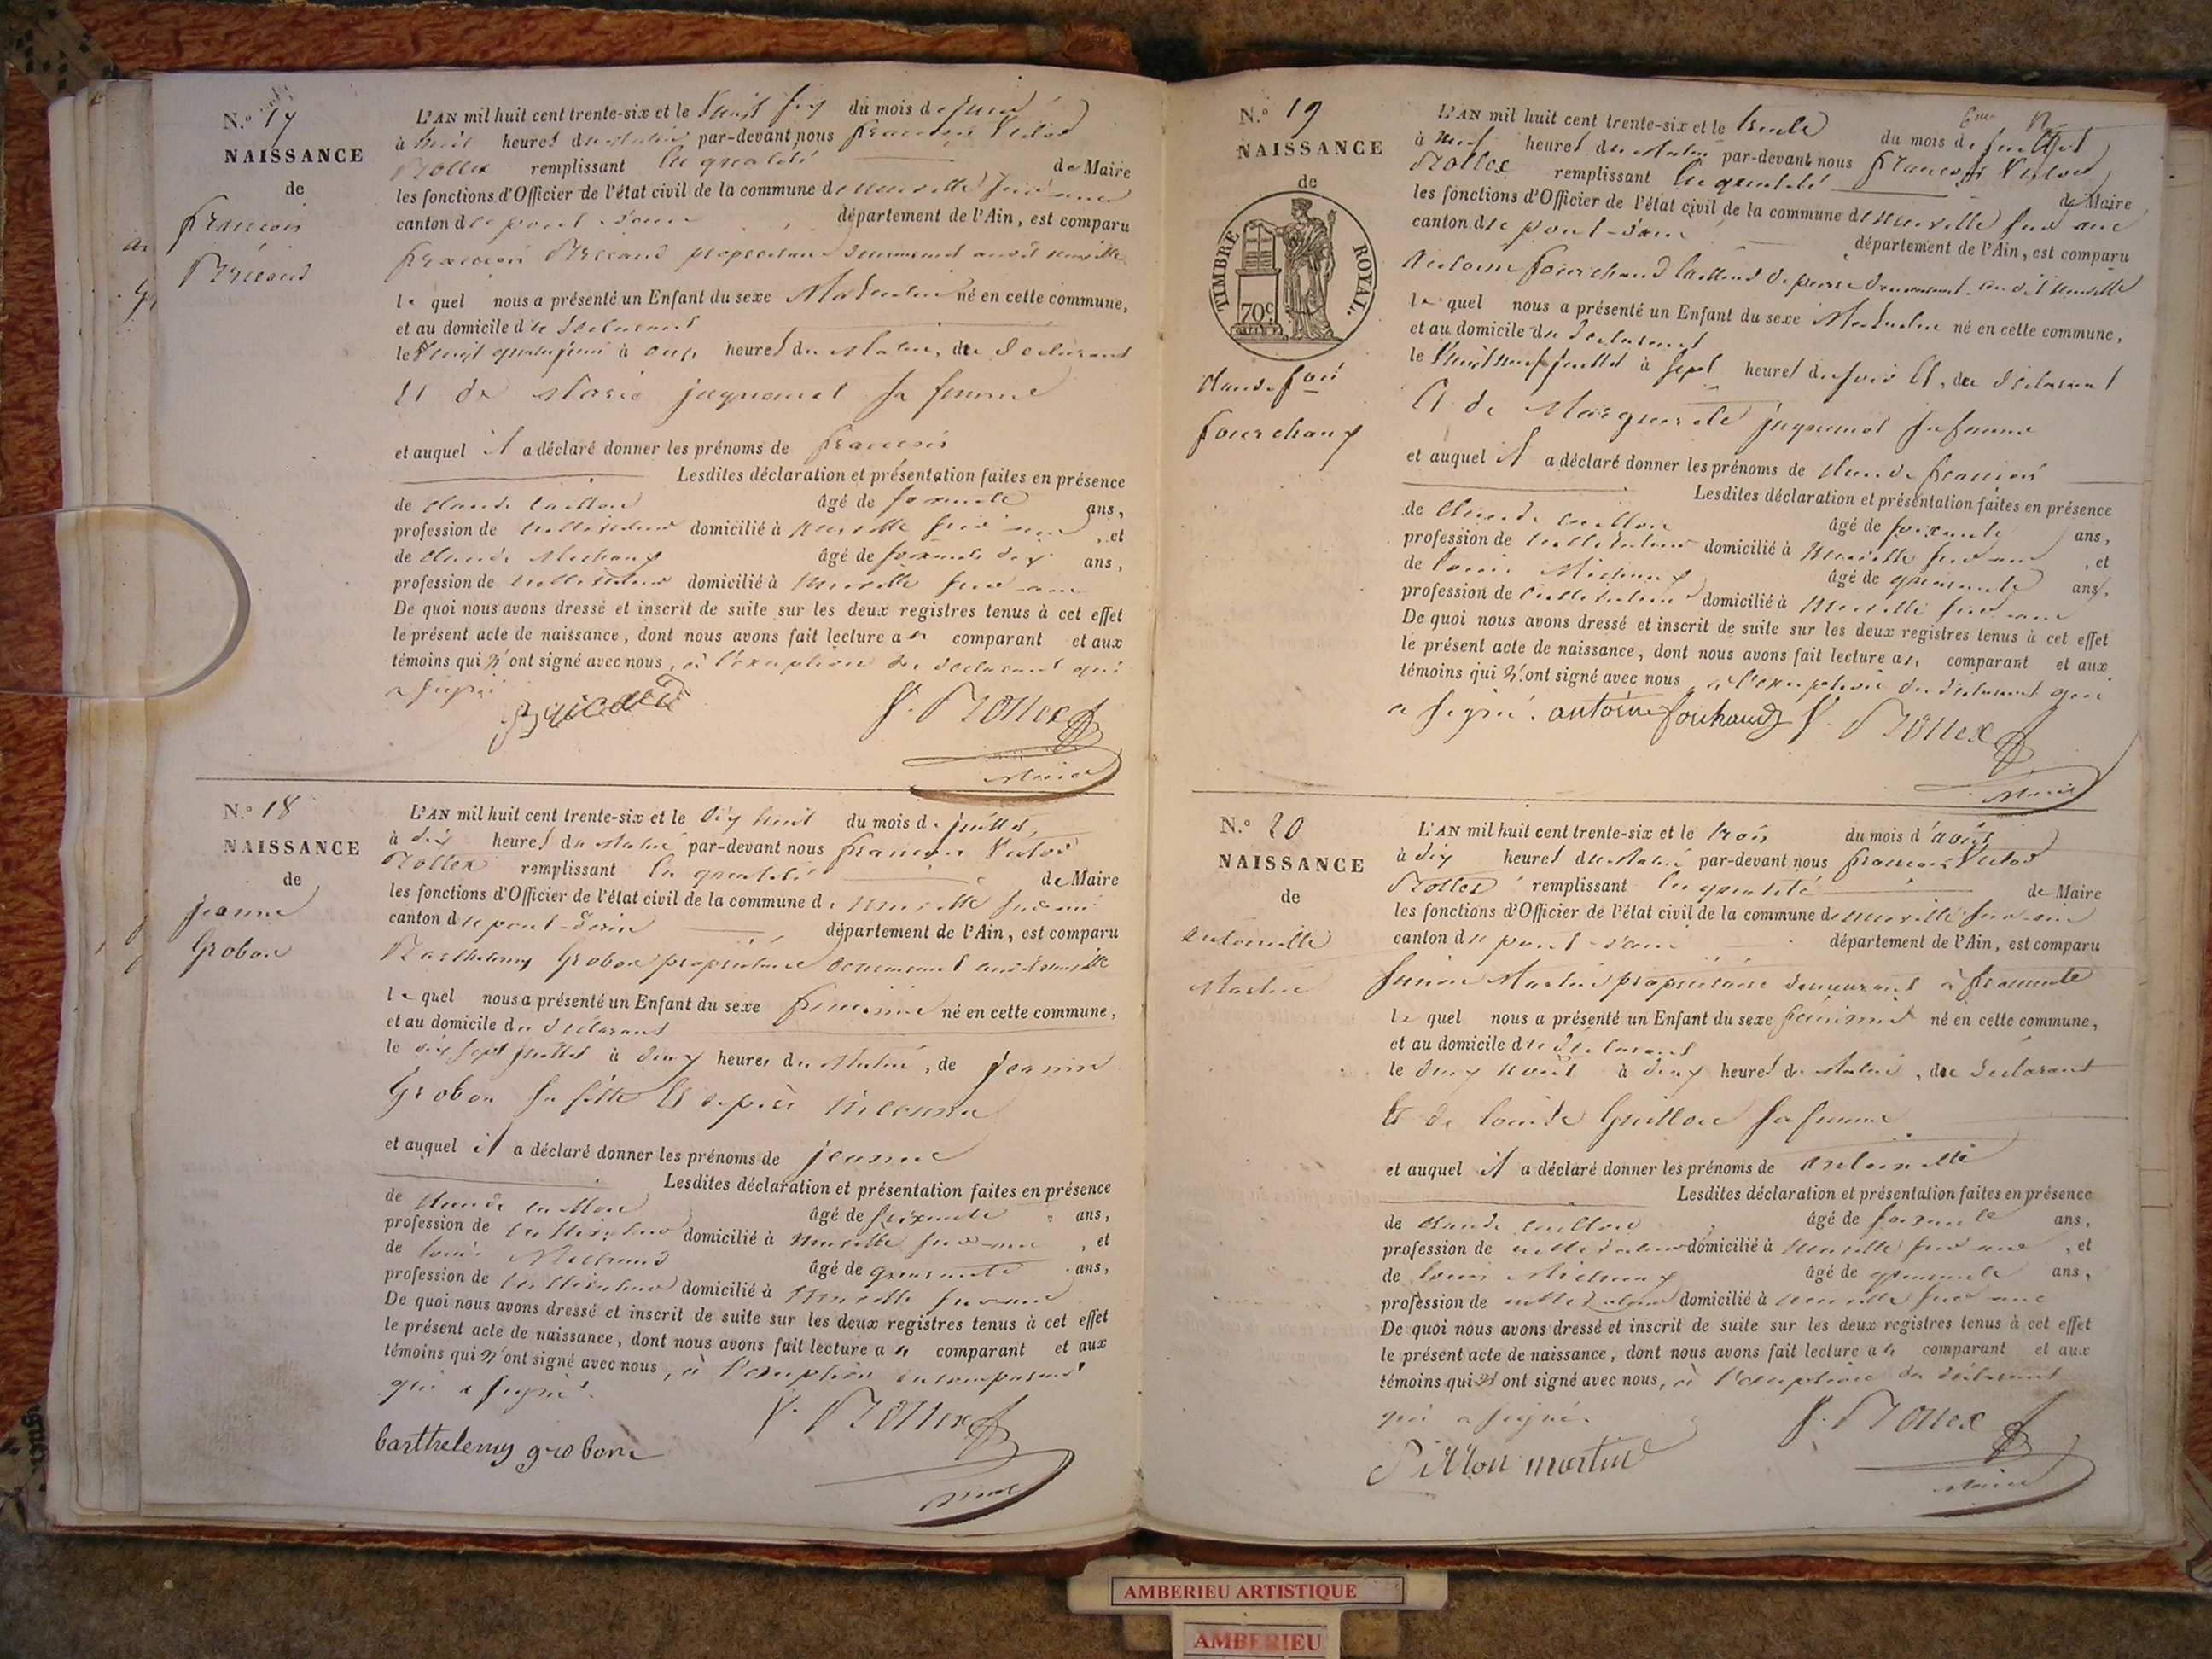 N.° 17
NAISSANCE
de
françois
L'AN mil huit cent trente-six et le Vingt six du mois de juin
à huit heures du Matin par-devant nous françois Victor
Rollex remplissant la qualité de Maire
les fonctions d'Officier de l'état civil de la commune de neuville sur ain
canton de pont-d'ain département de l'Ain, est comparu
françois propriétaire demeurant audit neuville
le quel nous a présenté un Enfant du sexe Masculin né en cette commune,
et au domicile du declarant
le Vingt quatre juin à onze heures du Matin, du declarant
Et de Marie juquenel sa femme
et auquel il a déclaré donner les prénoms de françois
Lesdites déclaration et présentation faites en présence
de Claude âgé de soixante ans,
profession de cultivateur domicilié à neuville sur ain, et
de Claude Michaux âgé de soixante dix ans,
profession de cultivateur domicilié à neuville sur ain
De quoi nous avons dressé et inscrit de suite sur les deux registres tenus à cet effet
le présent acte de naissance, dont nous avons fait lecture au comparant et aux
témoins qui n'ont signé avec nous, à l'exception du declarant qui
a signé
V. Rollex
Maire
N.° 18
NAISSANCE
de
jeanne
Grobon
L'AN mil huit cent trente-six et le dix huit du mois de juillet
à dix heures du Matin par-devant nous françois Victor
Rollex remplissant la qualité de Maire
les fonctions d'Officier de l'état civil de la commune de neuville sur ain
canton de pont-d'ain département de l'Ain, est comparu
Barthelemy Grobon propriétaire demeurant audit neuville
le quel nous a présenté un Enfant du sexe feminin né en cette commune,
et au domicile du declarant
le dix sept juillet à deux heures du Matin, de jeanne
Grobon sa fille Et de père inconnu
et auquel il a déclaré donner les prénoms de jeanne
Lesdites déclaration et présentation faites en présence
de Claude âgé de soixante ans,
profession de cultivateur domicilié à neuville sur ain, et
de louis Michaud âgé de quarante ans,
profession de cultivateur domicilié à neuville sur ain
De quoi nous avons dressé et inscrit de suite sur les deux registres tenus à cet effet
le présent acte de naissance, dont nous avons fait lecture au comparant et aux
témoins qui n'ont signé avec nous, à l'exception du comparant
qui a signé.
V. Rollex
barthelemy grobon
Maire
N.° 19
NAISSANCE
de
TIMBRE ROYAL.
70c
Claude fois
fourchaux
L'AN mil huit cent trente-six et le trente du mois de juillet
à neuf heures du Matin par-devant nous françois Victor
Rollex remplissant la qualité de Maire
les fonctions d'Officier de l'état civil de la commune de neuville sur ain
canton de pont-d'ain département de l'Ain, est comparu
Antoine fourchaud tailleur de pierre demeurant audit neuville
le quel nous a présenté un Enfant du sexe Masculin né en cette commune,
et au domicile du declarant
le Vingt neuf juillet à sept heures du soir Et, du declarant
Et de Marguerite juquenel sa femme
et auquel il a déclaré donner les prénoms de Claude françois
Lesdites déclaration et présentation faites en présence
de Claude âgé de soixante ans,
profession de cultivateur domicilié à Neuville sur ain, et
de louis Michaux âgé de quarante ans,
profession de cultivateur domicilié à Neuville sur ain
De quoi nous avons dressé et inscrit de suite sur les deux registres tenus à cet effet
le présent acte de naissance, dont nous avons fait lecture au comparant et aux
témoins qui n'ont signé avec nous, à l'exception du declarant qui
a signé. antoine fouchaud V. Rollex
Maire
N.° 20
NAISSANCE
de
antoinette
Martin
L'AN mil huit cent trente-six et le trois du mois d'août
à dix heures du Matin par-devant nous françois Victor
Rollex remplissant la qualité de Maire
les fonctions d'Officier de l'état civil de la commune de neuville sur ain
canton de pont-d'ain département de l'Ain, est comparu
Martin propriétaire demeurant à fromente
le quel nous a présenté un Enfant du sexe féminin né en cette commune,
et au domicile du declarant
le deux août à deux heures du Matin, du declarant
Et de louise Guillon sa femme
et auquel il a déclaré donner les prénoms de antoinette
Lesdites déclaration et présentation faites en présence
de Claude âgé de soixante ans,
profession de cultivateur domicilié à neuville sur ain, et
de louis Michaux âgé de quarante ans,
profession de cultivateur domicilié à neuville sur ain
De quoi nous avons dressé et inscrit de suite sur les deux registres tenus à cet effet
le présent acte de naissance, dont nous avons fait lecture au comparant et aux
témoins qui n'ont signé avec nous, à l'exception du declarant
qui a signé.
V. Rollex
martin
Maire
AMBERIEU ARTISTIQUE
AMBERIEU